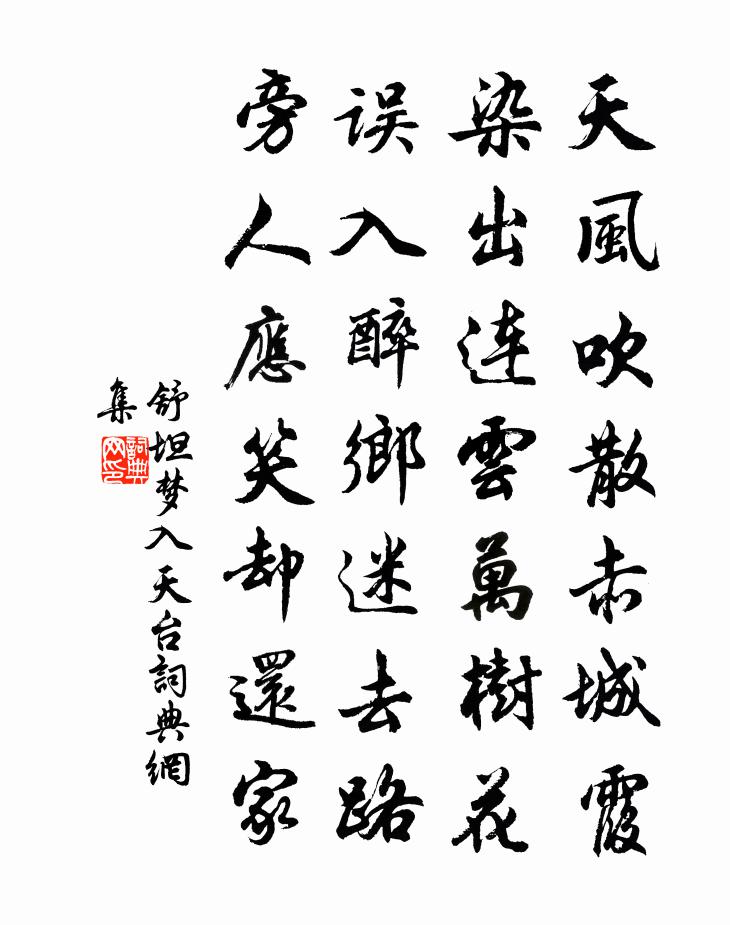 天風吹散赤城霞
染出连雲萬樹花
误入醉鄉迷去路
旁人應笑却還家
舒坦梦入天台詞典網
集
詞典网印